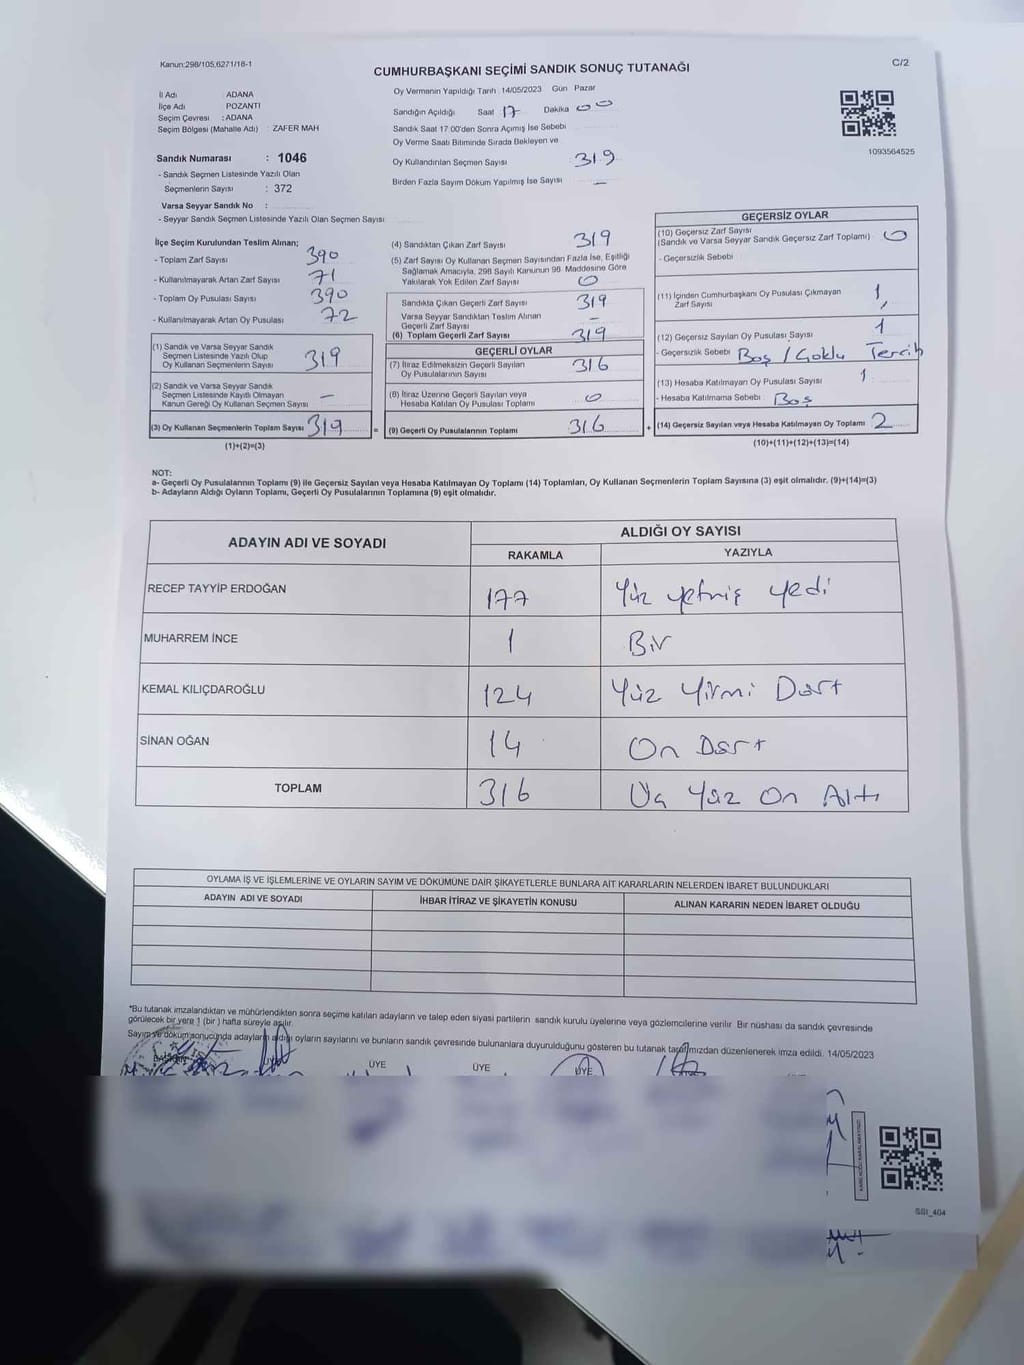 Kanun:298/105,6271/18-1
CUMHURBAŞKANI SEÇİMİ SANDIK SONUÇ TUTANAĞI
C/2
İl Adı ADANA
İlçe Adı POZANTI
Seçim Çevresi : ADANA
Seçim Bölgesi (Mahalle Adı) : ZAFER MAH
Sandık Numarası : 1046
- Sandık Seçmen Listesinde Yazılı Olan
Seçmenlerin Sayısı : 372
Varsa Seyyar Sandık No :
- Seyyar Sandık Seçmen Listesinde Yazılı Olan Seçmen Sayısı
Oy Vermenin Yapıldığı Tarih 14/05/2023 Gün Pazar
Sandığın Açıldığı Saat 17 Dakika 00
Sandık Saat 17.00'den Sonra Açımış İse Sebebi
Oy Verme Saati Bitiminde Sırada Bekleyen ve
Oy Kullandırılan Seçmen Sayısı 319
Birden Fazla Sayım Döküm Yapılmış İse Sayısı —
1093564525
İlçe Seçim Kurulundan Teslim Alınan;
- Toplam Zarf Sayısı 390
- Kullanılmayarak Artan Zarf Sayısı 71
- Toplam Oy Pusulası Sayısı 390
- Kullanılmayarak Artan Oy Pusulası 72
(1) Sandık ve Varsa Seyyar Sandık
Seçmen Listesinde Yazılı Olup
Oy Kullanan Seçmenlerin Sayısı 319
(2) Sandık ve Varsa Seyyar Sandık
Seçmen Listesinde Kayıtlı Olmayan
Kanun Gereği Oy Kullanan Seçmen Sayısı —
(3) Oy Kullanan Seçmenlerin Toplam Sayısı 319
(1)+(2)=(3)
(4) Sandıktan Çıkan Zarf Sayısı 319
(5) Zarf Sayısı Oy Kullanan Seçmen Sayısından Fazla İse, Eşitliği
Sağlamak Amacıyla, 298 Sayılı Kanunun 98. Maddesine Göre
Yakılarak Yok Edilen Zarf Sayısı 0
Sandıkta Çıkan Geçerli Zarf Sayısı 319
Varsa Seyyar Sandıktan Teslim Alınan
Geçerli Zarf Sayısı —
(6) Toplam Geçerli Zarf Sayısı 319
GEÇERLİ OYLAR
(7) İtiraz Edilmeksizin Geçerli Sayılan
Oy Pusulalarının Sayısı 316
(8) İtiraz Üzerine Geçerli Sayılan veya
Hesaba Katılan Oy Pusulası Toplamı 0
= (9) Geçerli Oy Pusulalarının Toplamı 316
GEÇERSİZ OYLAR
(10) Geçersiz Zarf Sayısı
(Sandık ve Varsa Seyyar Sandık Geçersiz Zarf Toplamı) 0
- Geçersizlik Sebebi
(11) İçinden Cumhurbaşkanı Oy Pusulası Çıkmayan
Zarf Sayısı 1
(12) Geçersiz Sayılan Oy Pusulası Sayısı 1
- Geçersizlik Sebebi Boş / Çoklu Tercih
(13) Hesaba Katılmayan Oy Pusulası Sayısı 1
- Hesaba Katılmama Sebebi Boş
+ (14) Geçersiz Sayılan veya Hesaba Katılmayan Oy Toplamı 2
(10)+(11)+(12)+(13)=(14)
NOT:
a- Geçerli Oy Pusulalarının Toplamı (9) ile Geçersiz Sayılan veya Hesaba Katılmayan Oy Toplamı (14) Toplamları, Oy Kullanan Seçmenlerin Toplam Sayısına (3) eşit olmalıdır. (9)+(14)=(3)
b- Adayların Aldığı Oyların Toplamı, Geçerli Oy Pusulalarının Toplamına (9) eşit olmalıdır.
ADAYIN ADI VE SOYADI ALDIĞI OY SAYISI
RAKAMLA YAZIYLA
RECEP TAYYİP ERDOĞAN 177 Yüz yetmiş yedi
MUHARREM İNCE 1 Bir
KEMAL KILIÇDAROĞLU 124 Yüz Yirmi Dört
SİNAN OĞAN 14 On Dört
TOPLAM 316 Üç Yüz On Altı
OYLAMA İŞ VE İŞLEMLERİNE VE OYLARIN SAYIM VE DÖKÜMÜNE DAİR ŞİKAYETLERLE BUNLARA AİT KARARLARIN NELERDEN İBARET BULUNDUKLARI
ADAYIN ADI VE SOYADI İHBAR İTİRAZ VE ŞİKAYETİN KONUSU ALINAN KARARIN NEDEN İBARET OLDUĞU
*Bu tutanak imzalandıktan ve mühürlendikten sonra seçime katılan adayların ve talep eden siyasi partilerin sandık kurulu üyelerine veya gözlemcilerine verilir. Bir nüshası da sandık çevresinde
görülecek bir yere 1 (bir) hafta süreyle asılır.
Sayım ve döküm sonucunda adayların aldığı oyların sayılarını ve bunların sandık çevresinde bulunanlara duyurulduğunu gösteren bu tutanak tarafımızdan düzenlenerek imza edildi. 14/05/2023
ÜYE ÜYE ÜYE
SSI_404